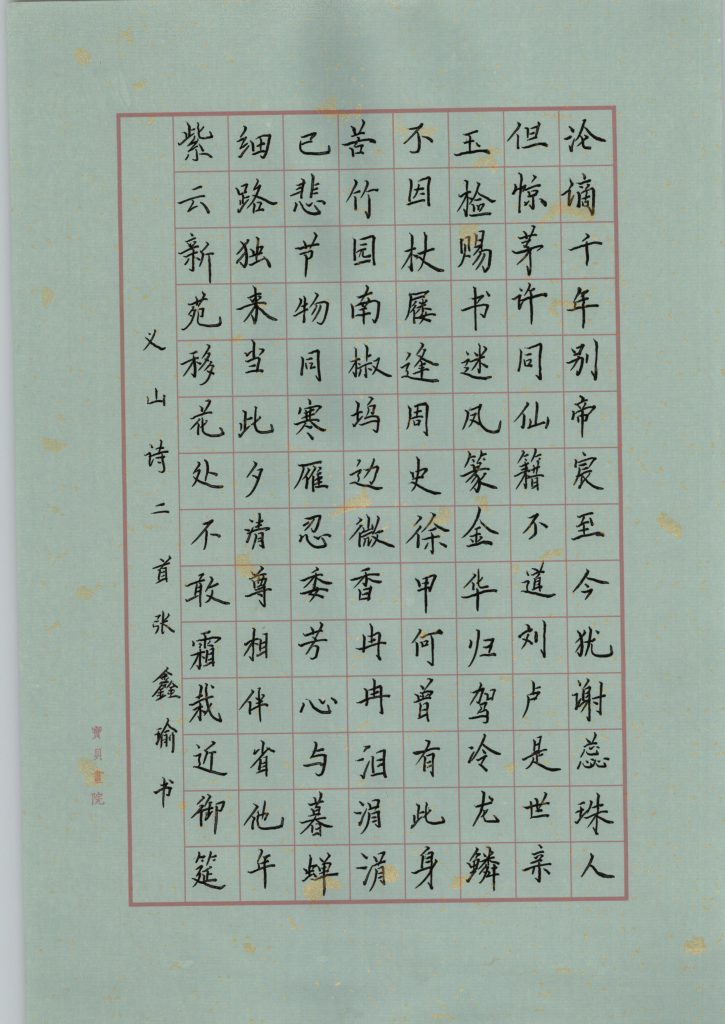 沦谪千年别帝宸至今犹谢蕊珠人
但惊茅许同仙籍不道刘卢是世亲
玉检赐书迷凤篆金华归驾冷龙鳞
不因杖屦逢周史徐甲何曾有此身
苦竹园南椒坞边微香冉冉泪涓涓
已悲节物同寒雁忍委芳心与暮蝉
细路独来当此夕清尊相伴省他年
紫云新苑移花处不敢霜栽近御筵
义山诗二首张鑫瑜书
寶貝畫院